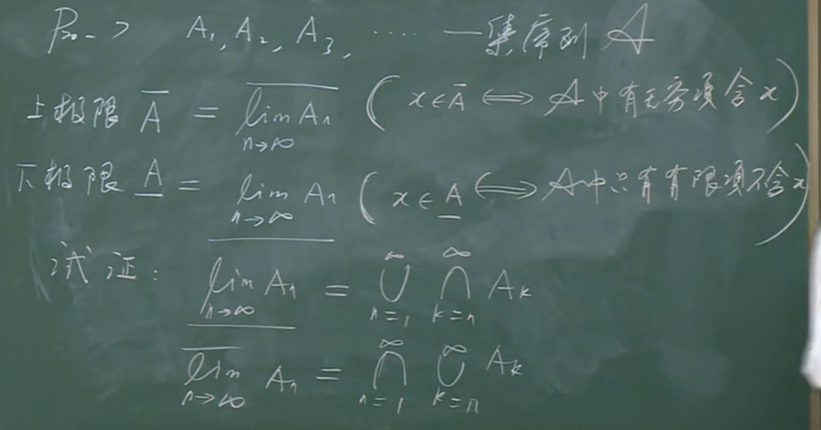 Pro → A₁, A₂, A₃, ····· 一集序列 𝒜
上极限 A̅ = \overline{lim}_{n→∞} Aₙ (x∈A̅ ⟺ 𝒜中有无穷项含x)
下极限 A̲ = \underline{lim}_{n→∞} Aₙ (x∈A̲ ⟺ 𝒜中只有有限项不含x)
试证: \underline{lim}_{n→∞} Aₙ = ⋃_{n=1}^{∞} ⋂_{k=n}^{∞} Aₖ
\overline{lim}_{n→∞} Aₙ = ⋂_{n=1}^{∞} ⋃_{k=n}^{∞} Aₖ